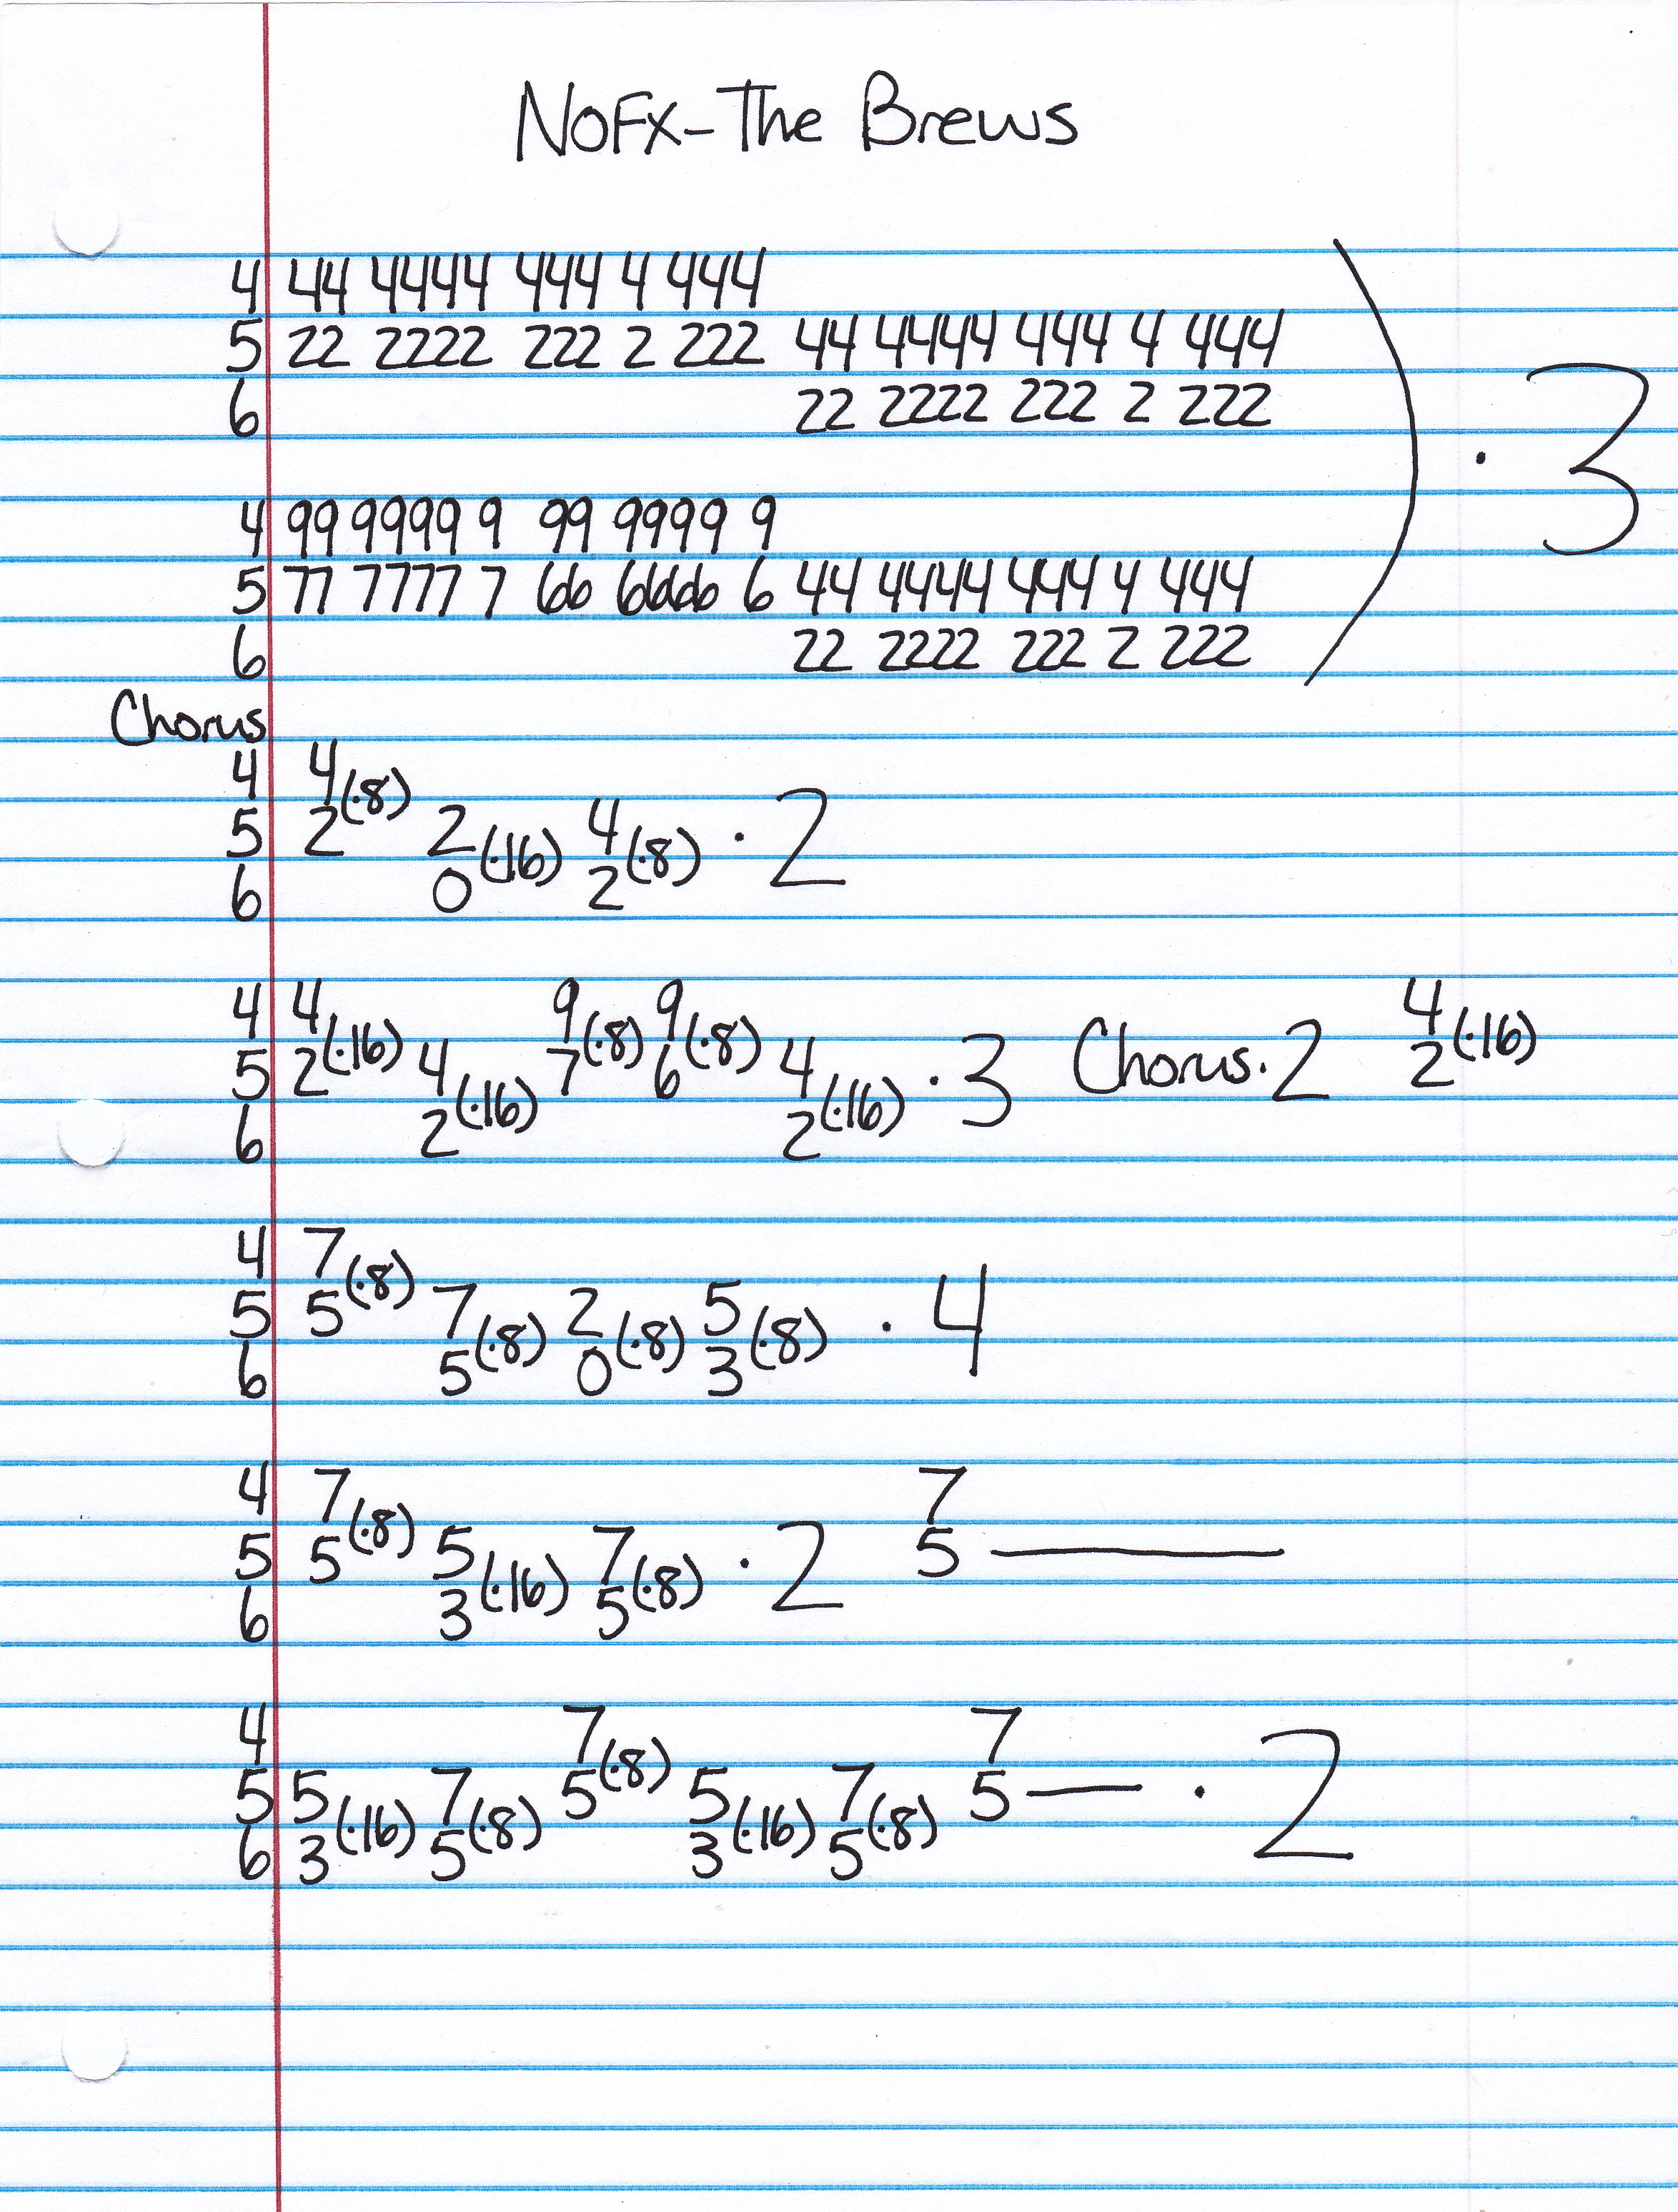 NOFX-The Brews
4 44 4444 444 4 444
5 22 2222 222 2 222 44 4444 444 4 444
6 22 2222 222 2 222
) · 3
4 99 9999 9 99 9999 9
5 77 7777 7 66 6666 6 44 4444 444 4 444
6 22 2222 222 2 222
Chorus
4 4
5 2 (·8) 2 4
6 0 (·16) 2 (·8) · 2
4 4 9 9 4
5 2 (·16) 4 7 (·8) 6 (·8) 4 · 3 Chorus · 2 2 (·16)
6 2 (·16) 2 (·16)
4 7
5 5 (·8) 7 2 5 · 4
6 5 (·8) 0 (·8) 3 (·8)
4 7 7
5 5 (·8) 5 7 · 2 5 —
6 3 (·16) 5 (·8)
4 7 7
5 5 7 5 (·8) 5 7 5 — · 2
6 3 (·16) 5 (·8) 3 (·16) 5 (·8)